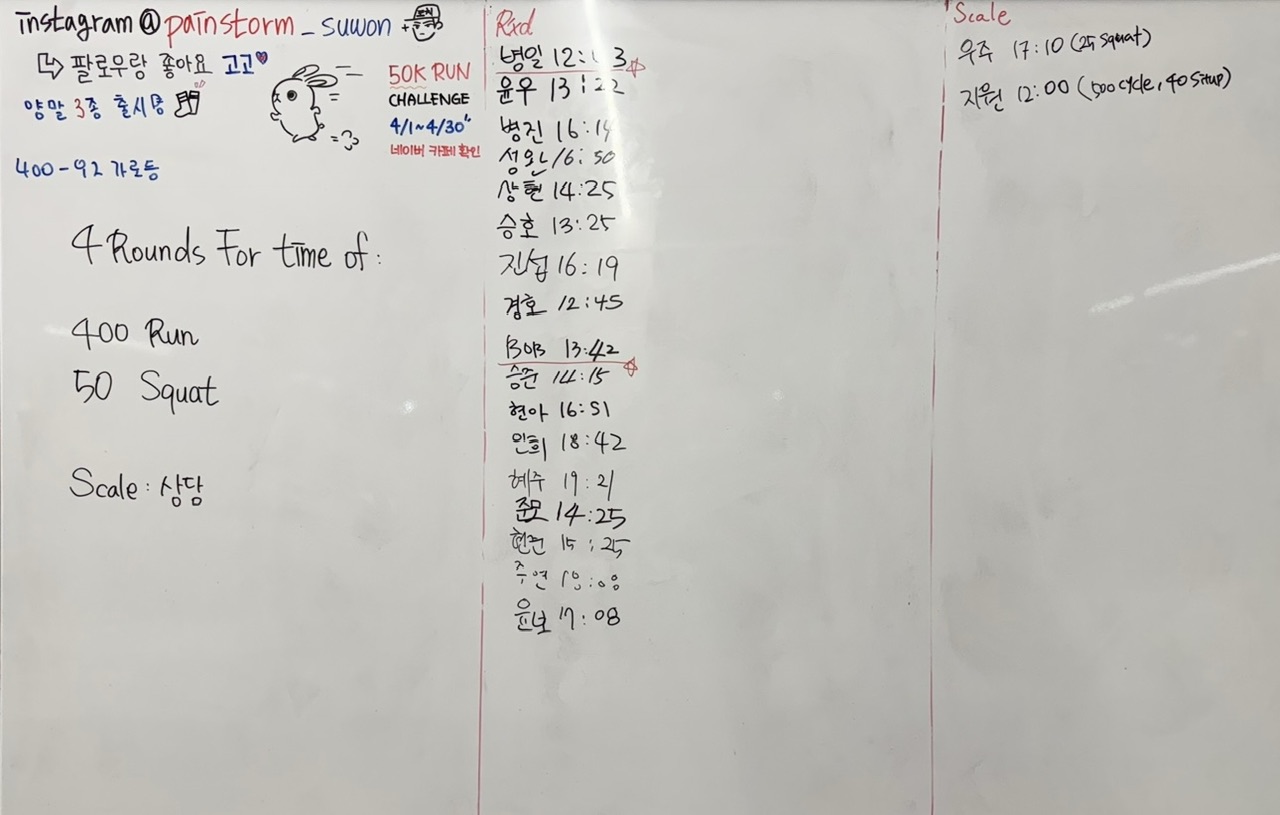 instagram@painstorm_suwon +
팔로우랑 좋아요 고고
양말 3종 출시중
50K RUN
CHALLENGE
4/1~4/30"
네이버 카페 확인
400-92 가로등
4 Rounds For time of:
400 Run
50 Squat
Scale: 상담
Rxd
병일
윤우 13:22
병진 16:14
성완 16:50
상현 14:25
승호 13:25
진섭 16:19
경호 12:45
BOB 13:42
승준 14:15
현아 16:51
민희 18:42
혜주 19:21
준모 14:25
현진 15:25
주연
윤보 17:08
Scale
우주 17:10 (25 squat)
지원 12:00 (500cycle, 40 situp)